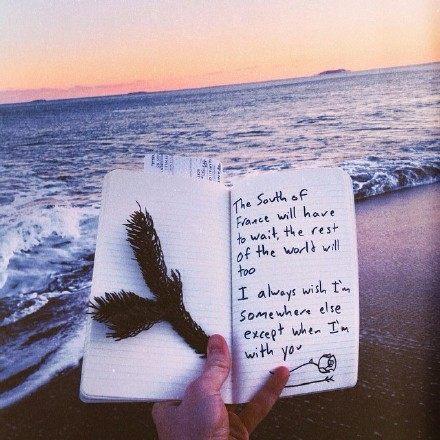 The South of
France will have
to wait, the rest
of the world will
too
I always wish I'm
somewhere else
except when I'm
with you